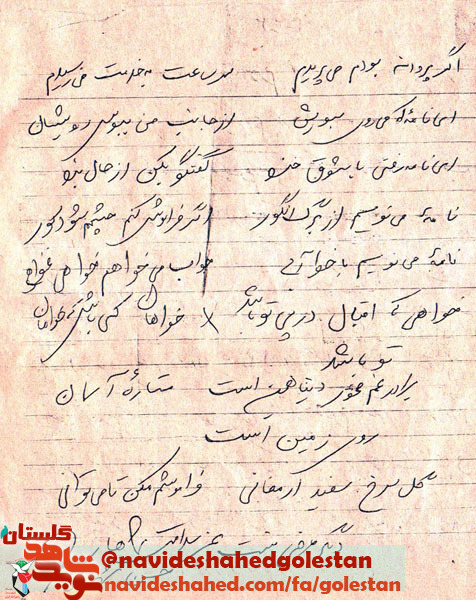 اگر پروانه بودم می پریدم سر ساعت به خدمت می رسیدم
ای نامه که می روی بسویش از جانب من ببوس رویش
ای نامه رفتی با شوق گفتگو بکن از حال
نامهٔ می نویسم از برگ انگور اگر فراموش کنم چشمم شود کور
نامهٔ می نویسم با جواب می خواهم خواهی نخواهی
خواهی که اقبال در پی تو باشد خواهان کسی باش که خواهان
تو باشد
برادر غم مخور دنیا همین است ستارهٔ آسمان
روی زمین است
گل سرخ سفید ارمغانی فراموشم مکن تا می توانی
دیگر عرضی نیست
نوید شاهد گلستان
@navideshahedgolestan
navideshahed.com/fa/golestan